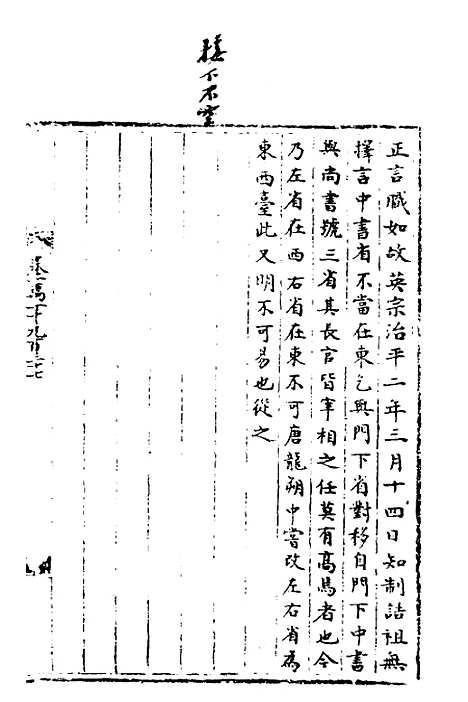 接下不空
正言職如故英宗治平二年三月十四日知制誥祖無
擇言中書省不當在東乞與門下省對移自門下中書
與尚書號三省其長官皆宰相之任莫有高焉者也今
乃左省在西右省在東不可唐龍朔中嘗改左右省為
東西臺此又明不可易也從之
卷一萬一千九百